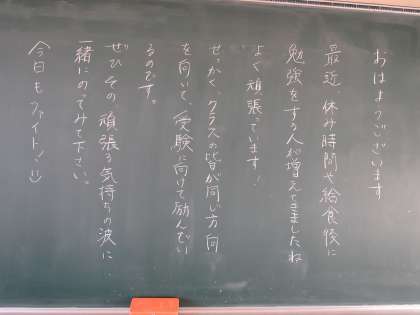 おはようございます
最近、休み時間や給食後に
勉強をする人が増えてきましたね
よく頑張っています！
せっかく、クラスの皆が同じ方向
を向いて、受験に向けて励んでい
るのです。
ぜひその、頑張る気持ちの波に
一緒にのってみて下さい。
今日もファイト！